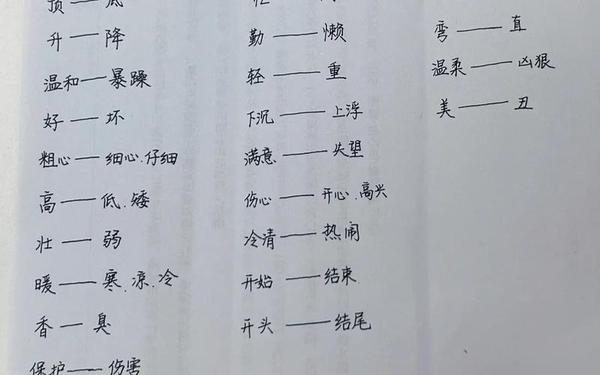 顶——底
升——降
温和——暴躁
好——坏
粗心——细心.仔细
高——低.矮
壮——弱
暖——寒.凉.冷
香——臭
保护——伤害
勤——懒
轻——重
下沉——上浮
满意——失望
伤心——开心.高兴
冷清——热闹
开始——结束
开头——结尾
弯——直
温柔——凶狠
美——丑